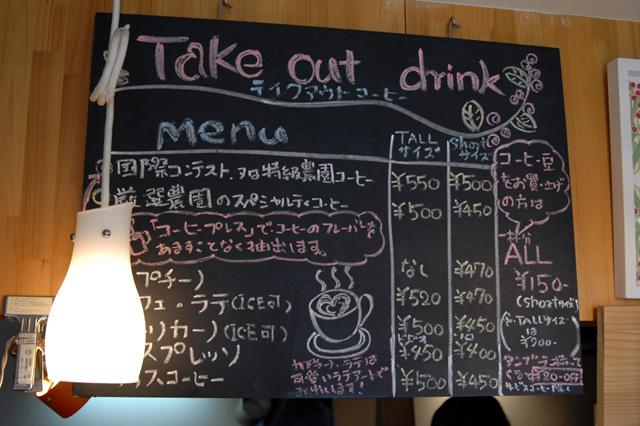 Take out drink
テイクアウトコーヒー
menu
TALLサイズ
shotサイズ
国際コンテスト 特級農園コーヒー ¥550 ¥500
厳選農園のスペシャルティコーヒー ¥500 ¥450
「コーヒープレス」でコーヒーのフレーバーを
あますことなく抽出します。
プチーノ なし ¥470
フェ・ラテ(ICE可) ¥520 ¥450
リカーノ(ICE可) ¥500 ¥450
スプレッソ ¥450 ¥400
スコーヒー ¥500 ¥450
ラテは
可愛いラテアートで
コーヒー豆
をお買上げ
の方は
一杯分
ALL
¥150-
(shotサイズ)
TALLサイズ
は
¥200-
¥20-OFF